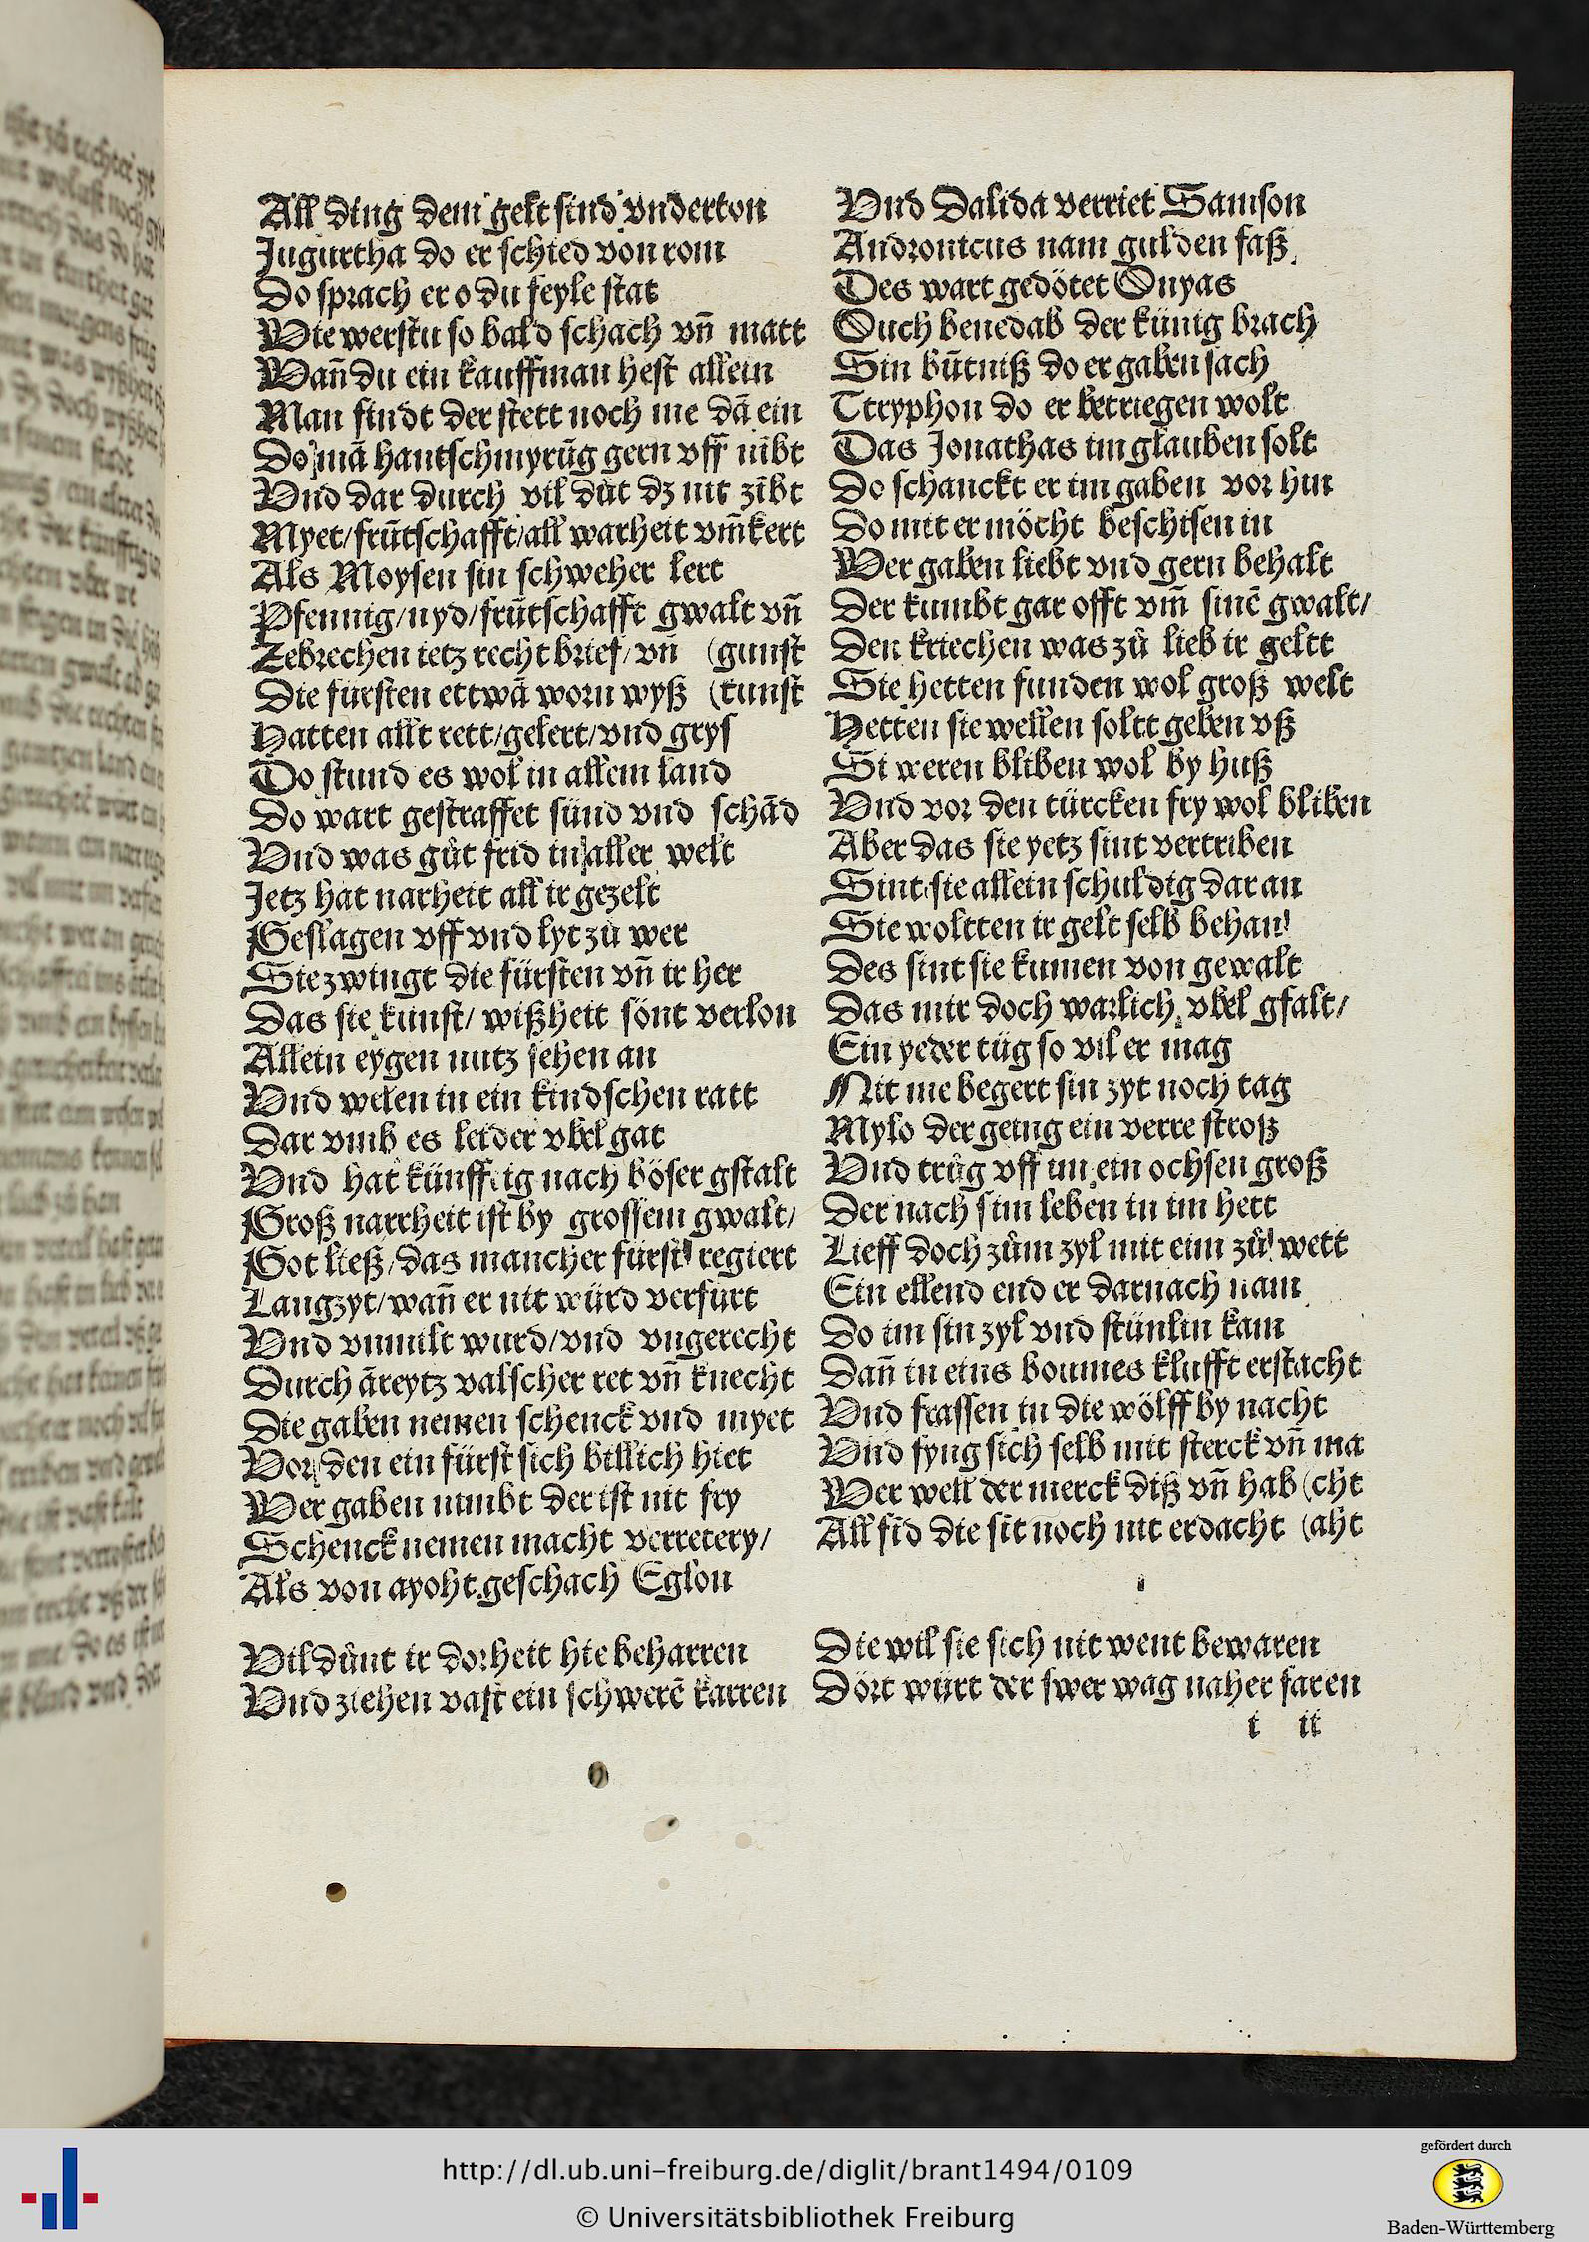 All ding dem gelt sind vnderton
Jugurtha do er schied von rom
Do sprach er o du feyle stat
Wie werstu so bald schach vn̄ matt
Wan̄ du ein kauffman hest allein
Man findt der stett noch me dā ein
Do mā hantschmyrūg gern vff nībt
Vnd dar durch vil dût dz nit zībt
Myet/frūtschafft/all warheit vm̄kert
Als Moysen sin schweher lert
Pfennig/nyd/frūtschafft gwalt vn̄
Zebrechen ietz recht brief/vn̄ (gunst
Die fürsten ettwā worn wyß (kunst
Hatten allt rett/gelert/vnd grys
Do stund es wol in allem land
Do wart gestraffet sünd vnd schād
Vnd was gût frid in aller welt
Jetz hat narheit all ir gezelt
Geslagen vff vnd lyt zû wer
Sie zwingt die fürsten vn̄ ir her
Das sie kunst/ wißheit sönt verlon
Allein eygen nutz sehen an
Vnd welen in ein kindschen ratt
Dar vmb es leider vbel gat
Vnd hat künfftig nach böser gstalt
Groß narrheit ist by grossem gwalt/
Got ließ/das mancher fürst regiert
Langzyt/wan̄ er nit würd verfurt
Vnd vnmilt wurd/vnd vngerecht
Durch āreytz valscher ret vn̄ knecht
Die gaben nemen schenck vnd myet
Vor den ein fürst sich billich hiet
Wer gaben nimbt der ist nit fry
Schenck nemen macht verretery/
Als von ayoht geschach Eglon
Vnd Dalida verriet Samson
Andronicus nam gulden faß
Des wart gedötet Onyas
Ouch benedab der künig brach
Sin būtniß do er gaben sach
Ttryphon do er betriegen wolt
Das Jonathas im glauben solt
Do schanckt er im gaben vor hin
Do mit er möcht beschisen in
Wer gaben liebt vnd gern behalt
Der kumbt gar offt vm̄ sinē gwalt/
Den kriechen was zû lieb ir geltt
Sie hetten funden wol groß welt
Hetten sie wellen soltt geben vß
Si weren bliben wol by huß
Vnd vor den türcken fry wol bliben
Aber das sie yetz sint vertriben
Sint sie allein schuldig dar an
Sie woltten ir gelt selb behan
Des sint sie kumen von gewalt
Das mir doch warlich vbel gfalt/
Ein yeder tüg so vil er mag
Nit me begert sin zyt noch tag
Mylo der geing ein verre stroß
Vnd trûg vff im ein ochsen groß
Der nach sim leben in im hett
Lieff doch zûm zyl mit eim zû wett
Ein ellend end er darnach nam
Do im sin zyl vnd stünlin kam
Dan̄ in eins boumes klufft erstacht
Vnd frassen in die wölff by nacht
Vnd fyng sich selb mit sterck vn̄ ma
Wer well der merck diß vn̄ hab (cht
All sīd die sit noch nit erdacht (aht
Vil dûnt ir dorheit hie beharren
Vnd ziehen vast ein schwerē karren
Die wil sie sich nit went bewaren
Dört würt der swer wag naher faren
i ii
http://dl.ub.uni-freiburg.de/diglit/brant1494/0109
© Universitätsbibliothek Freiburg
gefördert durch
Baden-Württemberg